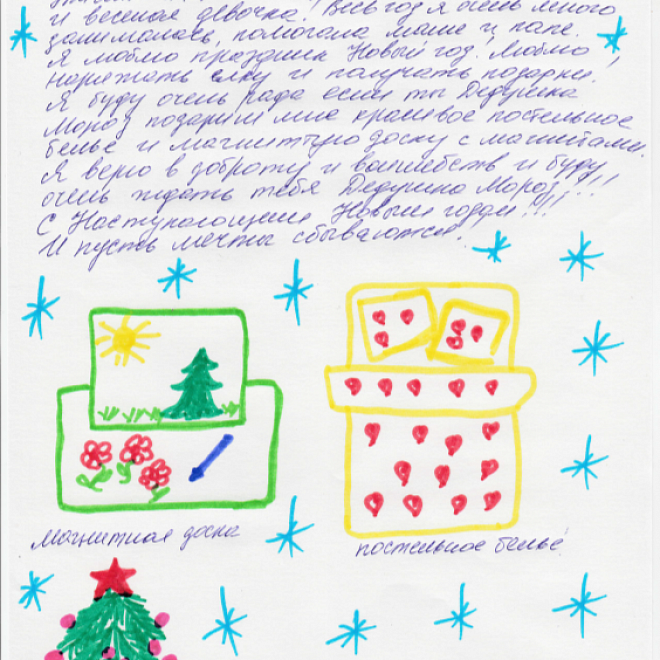 и веселая девочка! Весь год я очень много
занималась, помогала маме и папе.
Я люблю праздник Новый год! Люблю
наряжать елку и получать подарки.
Я буду очень рада если ты Дедушка
Мороз подаришь мне красивое постельное
белье и магнитную доску с магнитами.
Я верю в доброту и волшебств и буду
очень ждать тебя Дедушка Мороз!!!
С Наступающим Новым годом!!!
И пусть мечты сбываются!
магнитная доска
постельное бельё